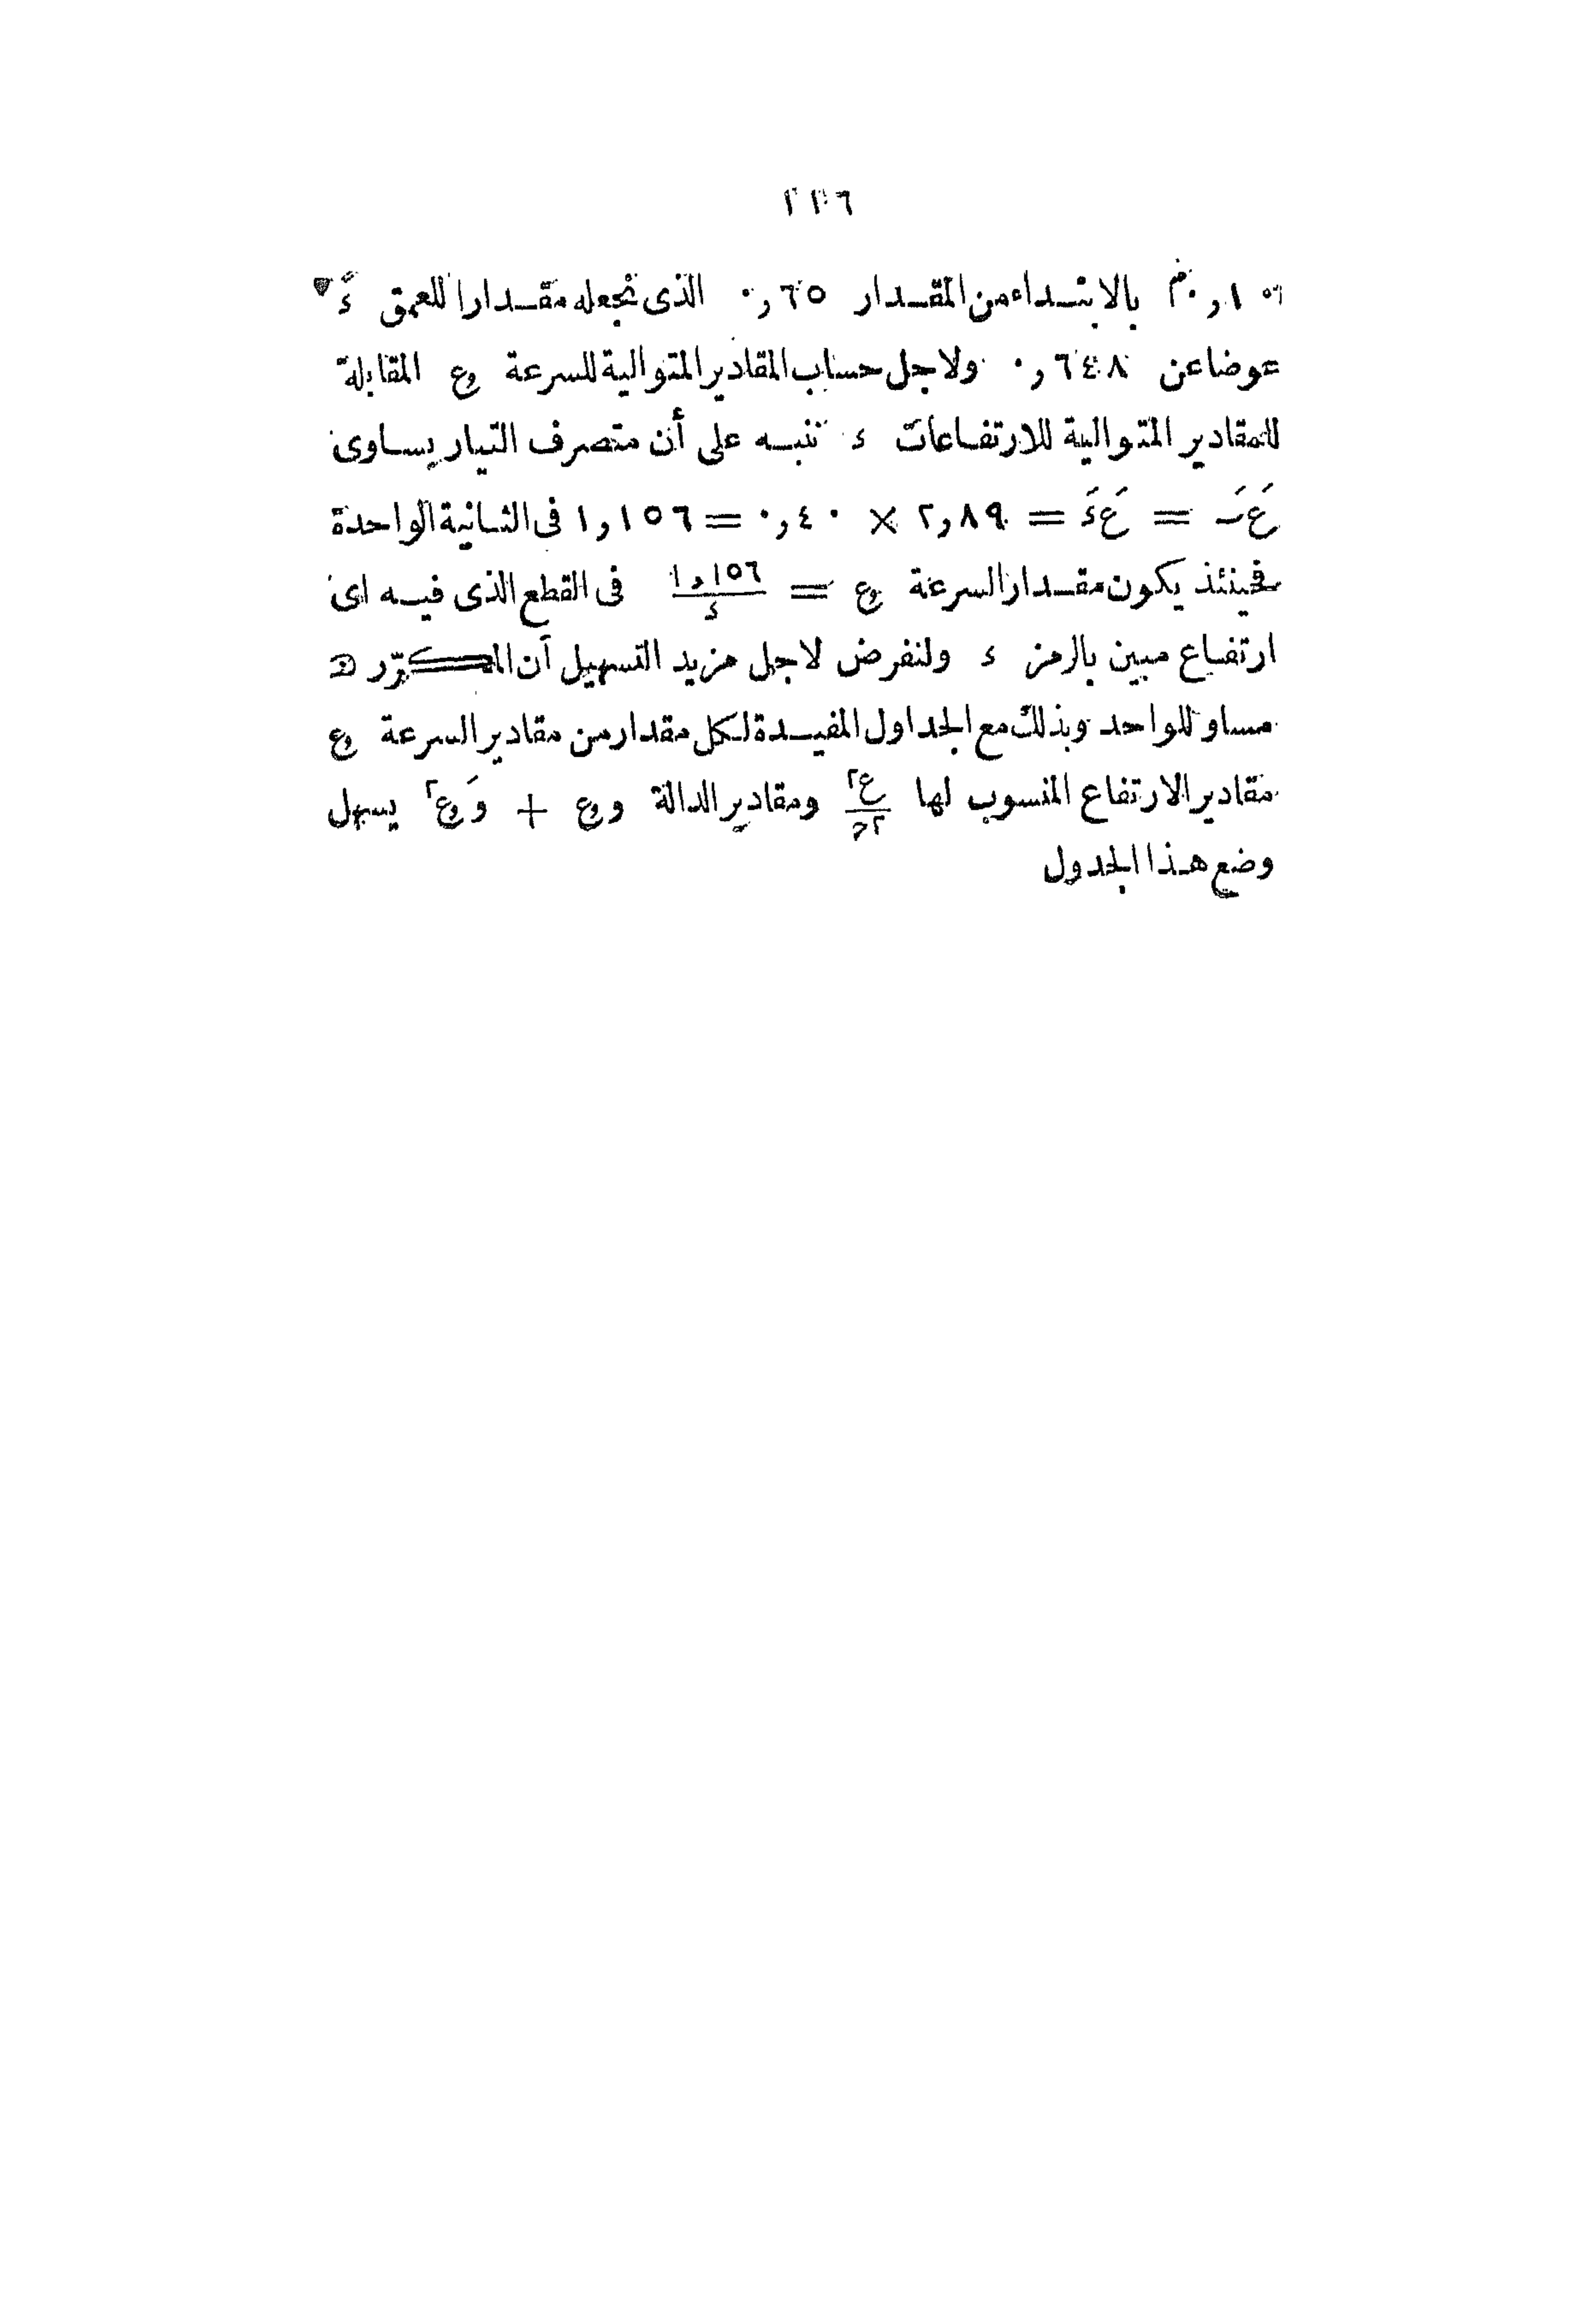 ٢١٦
٠٫١٠م بالابتداء من المقدار ٠٫٦٥ الذى نجعله مقدارا للعمق ءَ
عوضا عن ٠٫٦٤٨ ولاجل حساب المقادير المتوالية للسرعة وع المقابلة
للمقادير المتوالية للارتفاعات ء ننبه على أن متصرف التيار يساوى
عَ َ = عَ ءَ = ٢٫٨٩ × ٠٫٤٠ = ١٫١٥٦ فى الثانية الواحدة
فحينئذ يكون مقدار السرعة وع = ١٫١٥٦/ء فى القطع الذى فيه اى
ارتفاع مبين بالرمز ء ولنفرض لاجل مزيد التسهيل أن المكرّر
مساو للواحد وبذلك مع الجداول المفيدة لكل مقدار من مقادير السرعة وع
مقادير الارتفاع المنسوب لها ع٢/٢ح ومقادير الدالة و وع + وَ وع٢ يسهل
وضع هذا الجدول